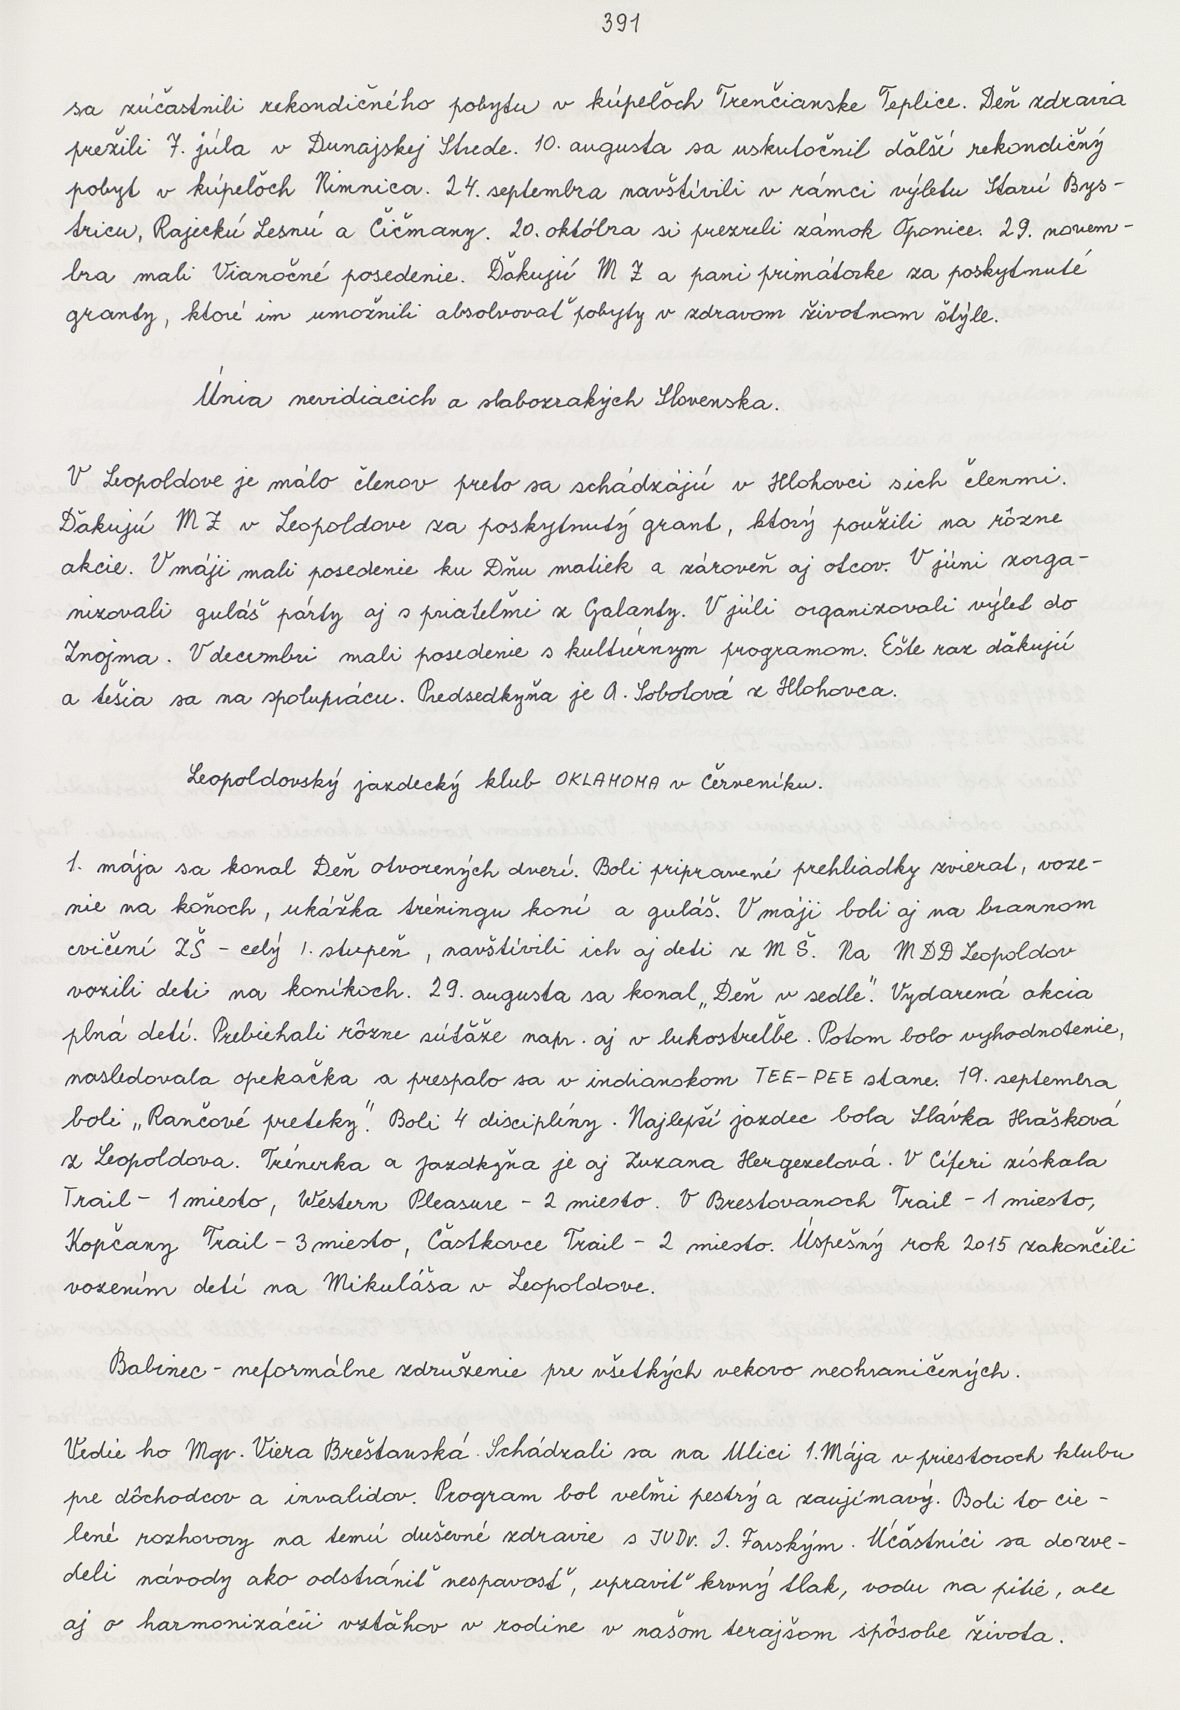 391
sa zúčastnili rekondičného pobytu v kúpeľoch Trenčianske Teplice. Deň zdravia
prežili 7. júla v Dunajskej Strede. 10. augusta sa uskutočnil ďalší rekondičný
pobyt v kúpeľoch Nimnica. 24. septembra navštívili v rámci výletu Starú Bys-
tricu, Rajeckú Lesnú a Čičmany. 20. októbra si prezreli zámok Oponice. 29. novem-
bra mali Vianočné posedenie. Ďakujú M Z a pani primátorke za poskytnuté
granty, ktoré im umožnili absolvovať pobyty v zdravom životnom štýle.
Únia nevidiacich a slabozrakých Slovenska.
V Leopoldove je málo členov preto sa schádzájú v Hlohovci s ich členmi.
Ďakujú MZ v Leopoldove za poskytnutý grant, ktorý použili na rôzne
akcie. V máji mali posedenie ku Dňu matiek a zároveň aj otcov. V júni zorga-
nizovali guláš párty aj s priateľmi z Galanty. V júli organizovali výlet do
Znojma. V decembri mali posedenie s kultúrnym programom. Ešte raz ďakujú
a tešia sa na spoluprácu. Predsedkyňa je A. Sobolová z Hlohovca.
Leopoldovský jazdecký klub OKLAHOMA v Červeníku.
1. mája sa konal Deň otvorených dverí. Boli pripravené prehliadky zvierat, voze-
nie na koňoch, ukážka tréningu koní a guláš. V máji boli aj na brannom
cvičení ZŠ - celý 1. stupeň, navštívili ich aj deti z M Š. Na MDD Leopoldov
vozili deti na koníkoch. 29. augusta sa konal „Deň v sedle". Vydarená akcia
plná detí. Prebiehali rôzne súťaže napr. aj v lukostreľbe. Potom bolo vyhodnotenie,
nasledovala opekačka a prespalo sa v indianskom TEE-PEE stane. 19. septembra
boli „Rančové preteky". Boli 4 disciplíny. Najlepší jazdec bola Slávka Hrašková
z Leopoldova. Trénerka a jazdkyňa je aj Zuzana Hergezelová. V Cíferi získala
Trail - 1 miesto, Western Pleasure - 2 miesto. V Brestovanoch Trail - 1 miesto,
Kopčany Trail - 3 miesto, Častkovce Trail - 2 miesto. Úspešný rok 2015 zakončili
vozením detí na Mikuláša v Leopoldove.
Babinec - neformálne združenie pre všetkých vekovo neohraničených.
Vedie ho Mgr. Viera Brešťanská. Schádzali sa na Ulici 1. Mája v priestoroch klubu
pre dôchodcov a invalidov. Program bol veľmi pestrý a zaujímavý. Boli to cie-
lené rozhovory na temú duševné zdravie s JUDr. J. Farským. Účastníci sa dozve-
deli návody ako odstrániť nespavosť, upraviť krvný tlak, vodu na pitie, ale
aj o harmonizácii vzťahov v rodine v našom terajšom spôsobe života.